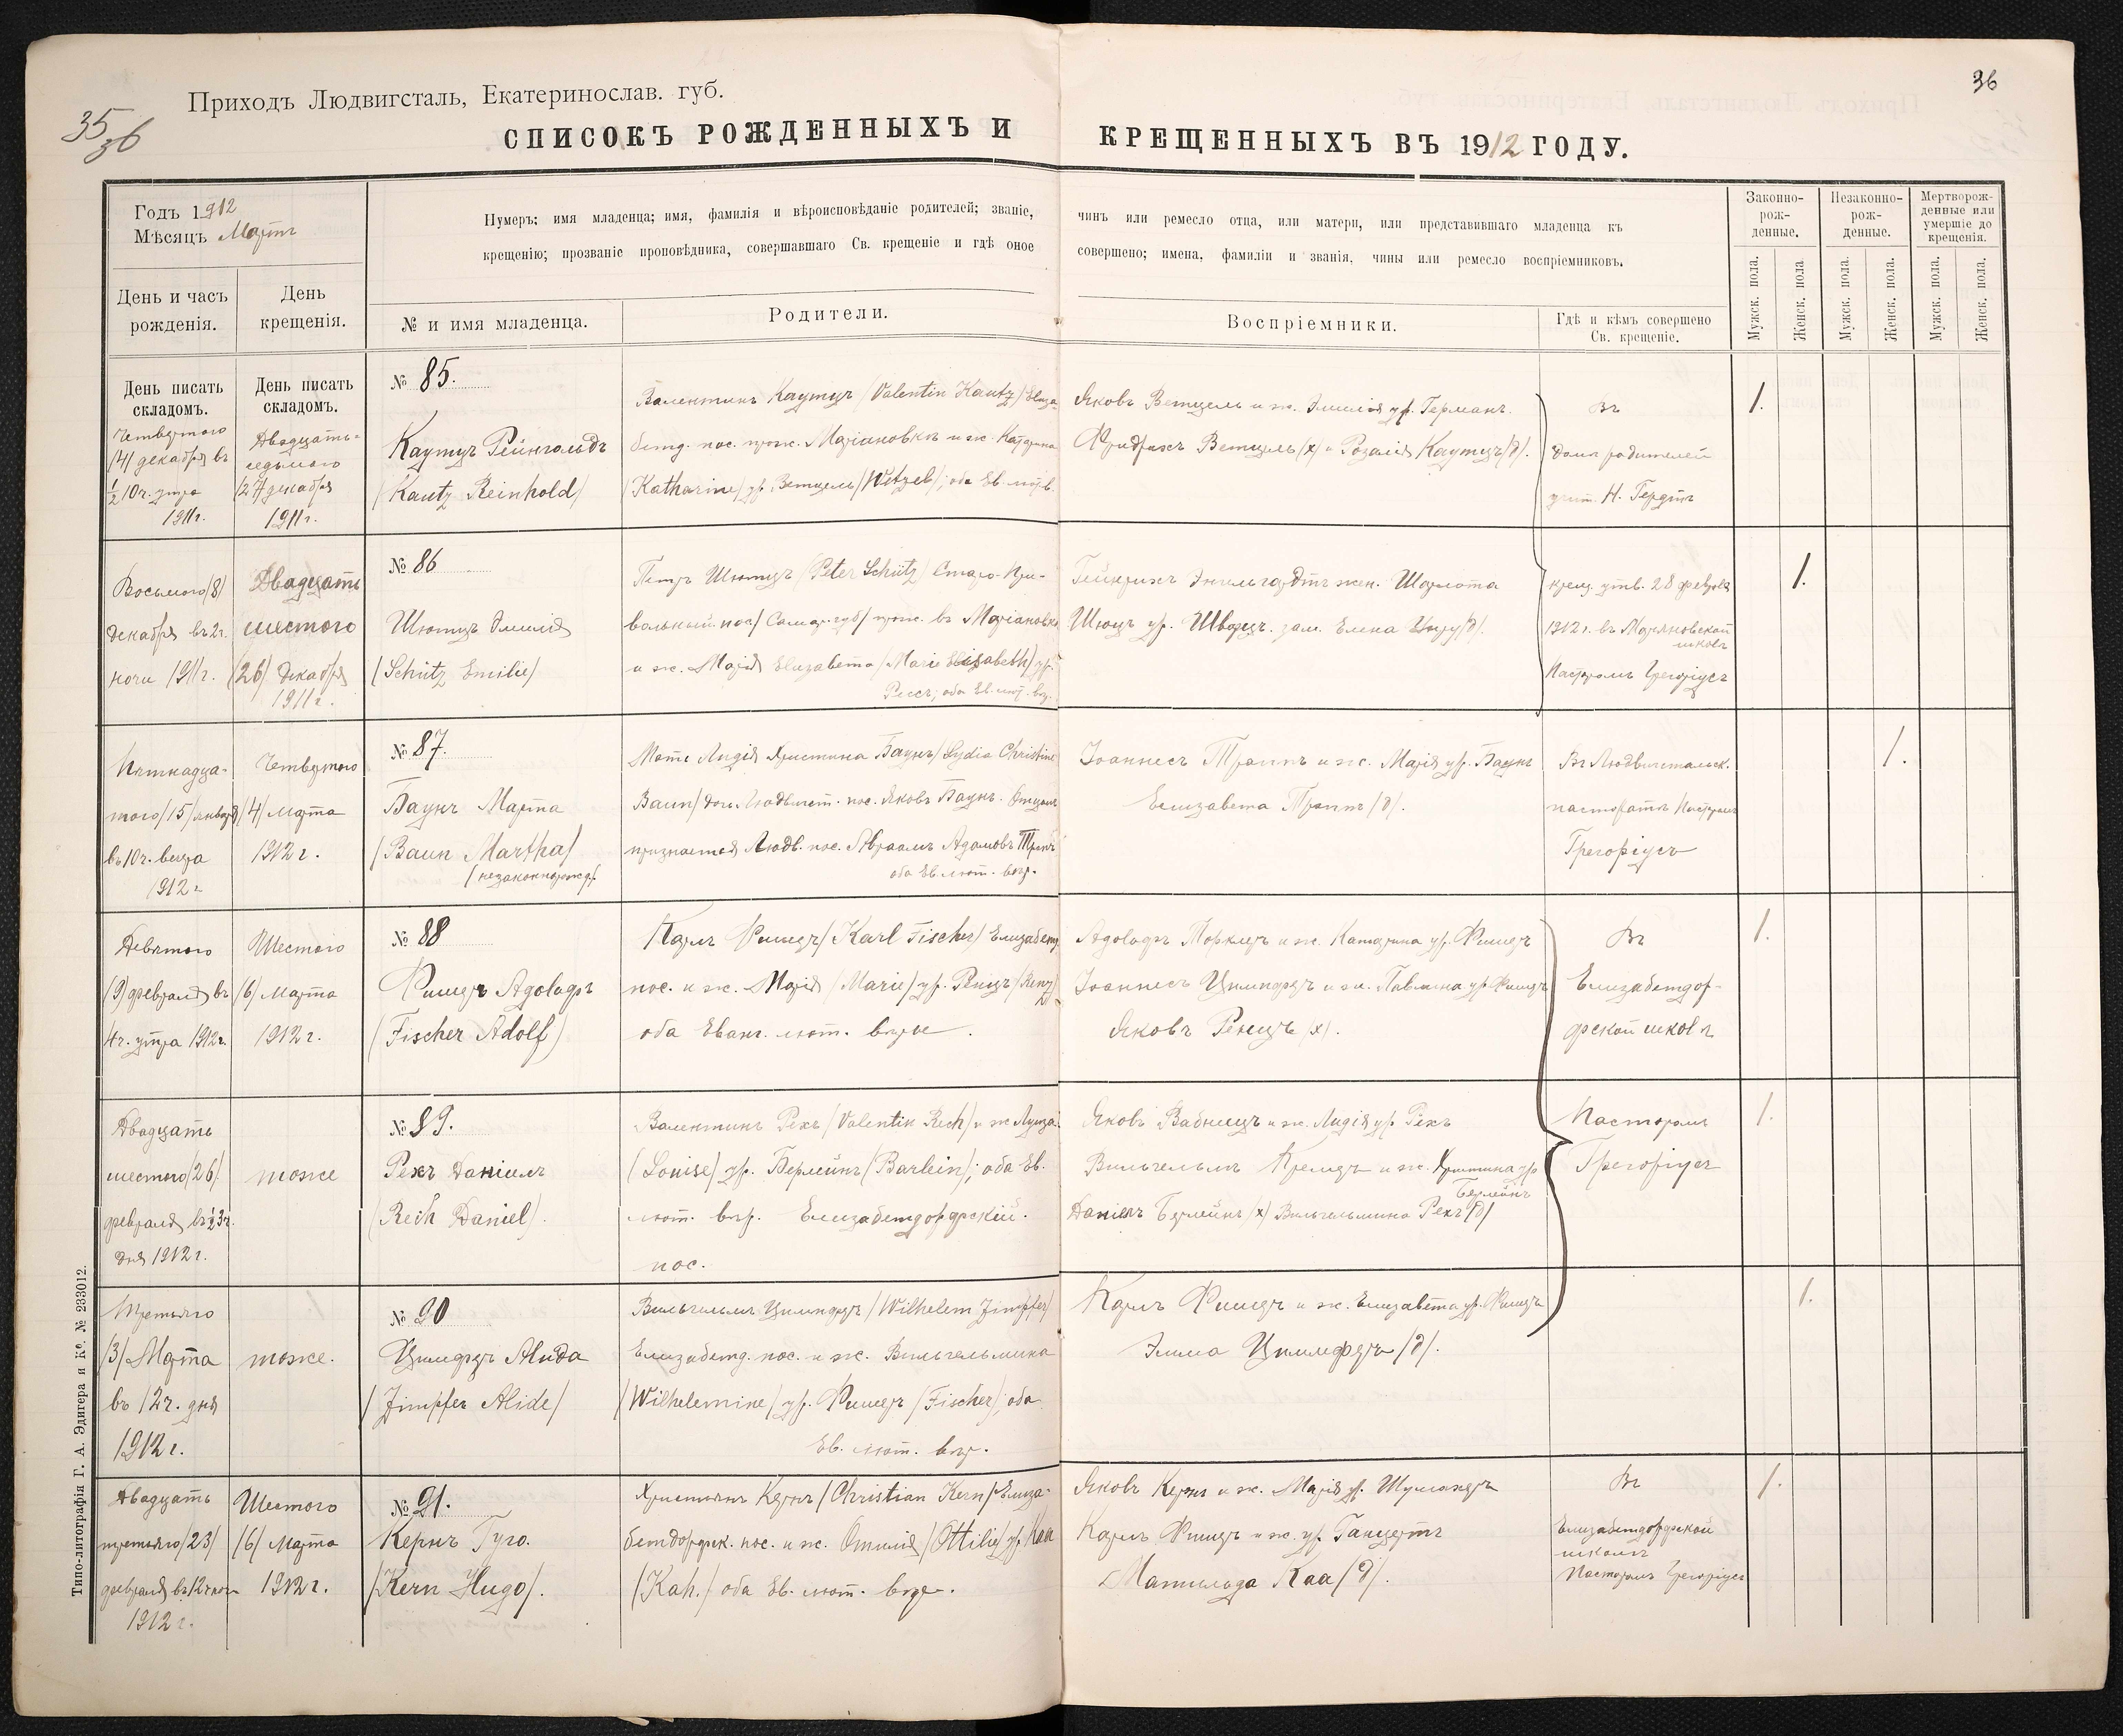 Приходъ Людвигсталь, Екатеринослав. губ.
35
36
36
СПИСОКЪ РОЖДЕННЫХЪ И КРЕЩЕННЫХЪ ВЪ 1912 ГОДУ.
Годъ 1912
Мѣсяцъ Мартъ
День и часъ
рожденія.
День
крещенія.
Нумеръ; имя младенца; имя, фамилія и вѣроисповѣданіе родителей; званіе, чинъ или ремесло отца, или матери, или представившаго младенца къ
крещенію; прозваніе проповѣдника, совершавшаго Св. крещеніе и гдѣ оное совершено; имена, фамиліи и званія, чины или ремесло воспріемниковъ.
№ и имя младенца.
Родители.
Воспріемники.
Гдѣ и кѣмъ совершено
Св. крещеніе.
Законно-
рож-
денные.
Незаконно-
рож-
денные.
Мертворож-
денные или
умершіе до
крещенія.
Мужск. пола.
Женск. пола
Мужск. пола.
Женск. пола.
Мужск. пола.
Женск. пола.
День писать
складомъ.
Четвертаго
/4/ декабря въ
½ 10ч. утра
1911г.
День писать
складомъ.
Двадцать-
седьмого
/27 декабря
1911г.
№ 85.
Каутцъ Рейнгольдъ
/Kautz Reinhold/
Валентинъ Каутцъ /Valentin Kautz/ Елиза-
бетд. пос. прож. Маріановкѣ и ж. Катарина
/Katharine/ ур. Ветцель /Wetzel/; оба Ев. лют. в.
Яковъ Ветцель и ж. Эмилія ур. Германъ.
Фридрихъ Ветцель /х/ и Розалія Каутцъ /д/.
въ
домѣ родителей
учит. Н. Гердтъ
1.
Восьмого /8/
декабря въ 2ч.
ночи 1911г.
Двадцать
шестого
/26/ декабря
1911г.
№ 86
Шютцъ Эмилія
/Schütz Emilie/
Петръ Шютцъ /Peter Schütz/ Старо-При-
вольный. пос / Самар. губ / прож. въ Маріановкѣ
и ж. Марія Елизабета /Marie Elisabeth/ ур.
Рессъ; оба Ев. лют. вѣр.
Гейнрихъ Энгельгардтъ жен. Шарлота
Шюцъ ур. Шварцъ. зам. Елена
крещ. утв. 28 февраля
1912г. въ Маріановской
школѣ
Пасторомъ Грегоріусъ
1.
Пятнадца-
таго /15/ января
въ 10ч. вечера
1912г.
Четвертаго
/4/ марта
1912г.
№ 87.
Баунъ Марта
/Baun Martha/
/незаконнорожд/.
Мать Лидія Христина Баунъ /Lydia Christine
Baun/ дочь Людвигст. пос. Яковъ Баунъ. Отцомъ
признается Людв. пос. Авраамъ Адамовъ
оба Ев. лют. вѣр.
Іоаннесъ Траппъ и ж. Марія ур. Баунъ
Елизавета Траппъ /д/.
Въ Людвигстальск.
пасторатѣ Пасторомъ
Грегоріусъ
1.
Девятого
/9/ февраля въ
4ч. утра 1912г.
Шестого
/6/ Марта
1912г.
№ 88
Фишеръ Адольфъ
(Fischer Adolf)
Карлъ Фишеръ /Karl Fischer/ Елизабетд.
пос. и ж. Марія /Marie/ ур. Ренцъ /Renz/
оба Еванг. лют. вѣрое.
Адольфъ и ж. Катарина ур. Фишеръ
Іоаннесъ Цимпферъ и ж. Павлина ур. Фишеръ
Яковъ Ренцъ /х/.
Въ
Елизабетдор-
фской школѣ
1.
Двадцать
шестого /26/
февраля въ ½3ч.
дня 1912г.
тоже
№ 89.
Рехъ Даніилъ
(Rech Daniel).
Валентинъ Рехъ /Valentin Rech/ и ж Луиза
(Louise/ ур. Берлейнъ (Barlein); оба Ев.
лют. вѣр. Елизабетдорфскій.
пос.
Яковъ и ж. Лидія ур. Рехъ
Вильгельмъ Кремеръ и ж. Христина ур
Берлейнъ
Даніилъ Берлейнъ /х/ Вильгельмина Рехъ /д/
Пасторомъ
Грегоріусъ
1.
Третьяго
/3/ Марта
въ 12ч. дня
1912г.
тоже.
№ 90
Цимпферъ Алида
/Zimpfer Alide/
Вильгельмъ Цимпферъ /Wilhelem Zimpfer/
Елизабетд. пос. и ж. Вильгельмина
/Wilhelemine/ ур. Фишеръ /Fischer/; оба
Ев. лют. вѣр.
Карлъ Фишеръ и ж. Елизабета ур. Фишеръ
Эмма Цимпферъ /д/.
1.
Двадцать
третьяго /23/
февраля въ 12ч ночи
1912г.
Шестого
/6/ Марта
1912г.
№ 91.
Кернъ Гуго.
/Kern Hugo/.
Христьянъ Кернъ /Christian Kern/ Елиза-
бетдорфск. пос. и ж. Отилія /Ottilie/ ур. Каа
(Kah./ оба Ев. лют. вѣр.
Яковъ Кернъ и ж. Марія ур. Шумахеръ
Карлъ Фишеръ и ж. ур. Ганцертъ
Матильда Каа /д/.
Въ
Елизабетдорфской
школѣ
Пасторомъ Грегоріусъ
1.
Типо-литографія Г. А. Эдигера и Ко. № 233012.